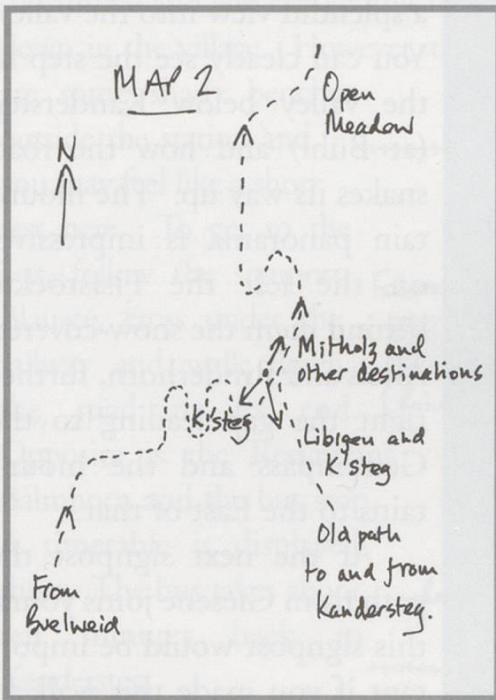 MAP 2
Open
Meadow
N
Mitholz and
other destinations
K'steg
K'steg
Old path
to and from
Kandersteg.
From